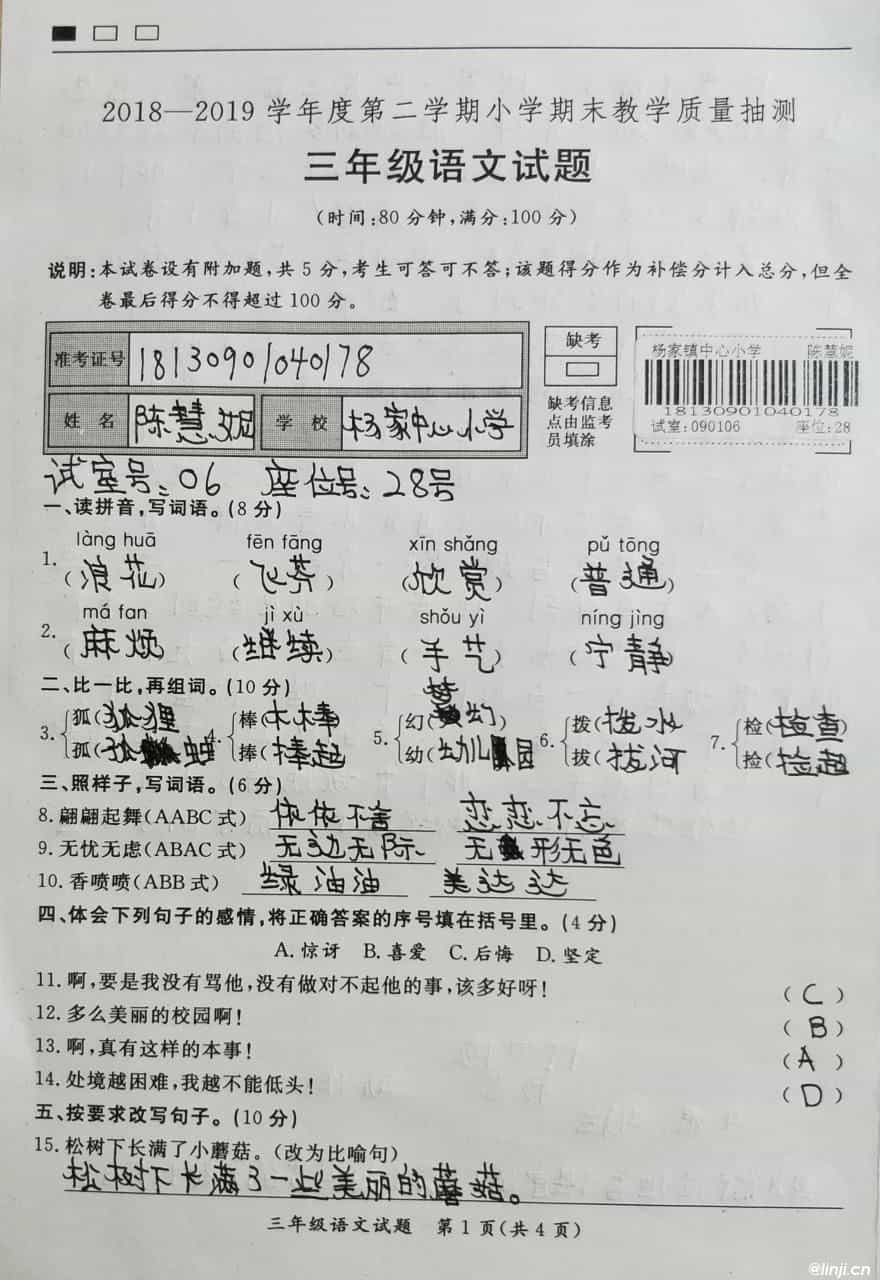 2018—2019 学年度第二学期小学期末教学质量抽测
三年级语文试题
(时间:80 分钟,满分:100 分)
说明:本试卷设有附加题,共 5 分,考生可答可不答;该题得分作为补偿分计入总分,但全
卷最后得分不得超过 100 分。
准考证号 18130901040178
姓 名 陈慧妮 学 校 杨家中心小学
缺考
缺考信息
点由监考
员填涂
杨家镇中心小学 陈慧妮
18130901040178
试室:090106 座位:28
试室号:06 座位号:28号
一、读拼音,写词语。(8 分)
làng huā fēn fāng xīn shǎng pǔ tōng
1. (浪花) (飞芬) (欣赏) (普通)
má fan jì xù shǒu yì níng jìng
2. (麻烦) (继续) (手艺) (宁静)
二、比一比,再组词。(10 分)
3. 狐(狐狸 4. 棒(木棒) 5. 幻(梦幻) 6. 拨(拨水 7. 检(检查)
孤(孤 捧(捧起 幼(幼儿园 拔(拔河 捡(捡起
三、照样子,写词语。(6 分)
8. 翩翩起舞(AABC 式) 依依不舍 恋恋不忘
9. 无忧无虑(ABAC 式) 无边无际 无形无色
10. 香喷喷(ABB 式) 绿油油 美达达
四、体会下列句子的感情,将正确答案的序号填在括号里。(4 分)
A. 惊讶 B. 喜爱 C. 后悔 D. 坚定
11. 啊,要是我没有骂他,没有做对不起他的事,该多好呀! (C)
12. 多么美丽的校园啊! (B)
13. 啊,真有这样的本事! (A)
14. 处境越困难,我越不能低头! (D)
五、按要求改写句子。(10 分)
15. 松树下长满了小蘑菇。(改为比喻句)
松树下长满了一些美丽的蘑菇。
三年级语文试题 第 1 页(共 4 页)
@linji.cn